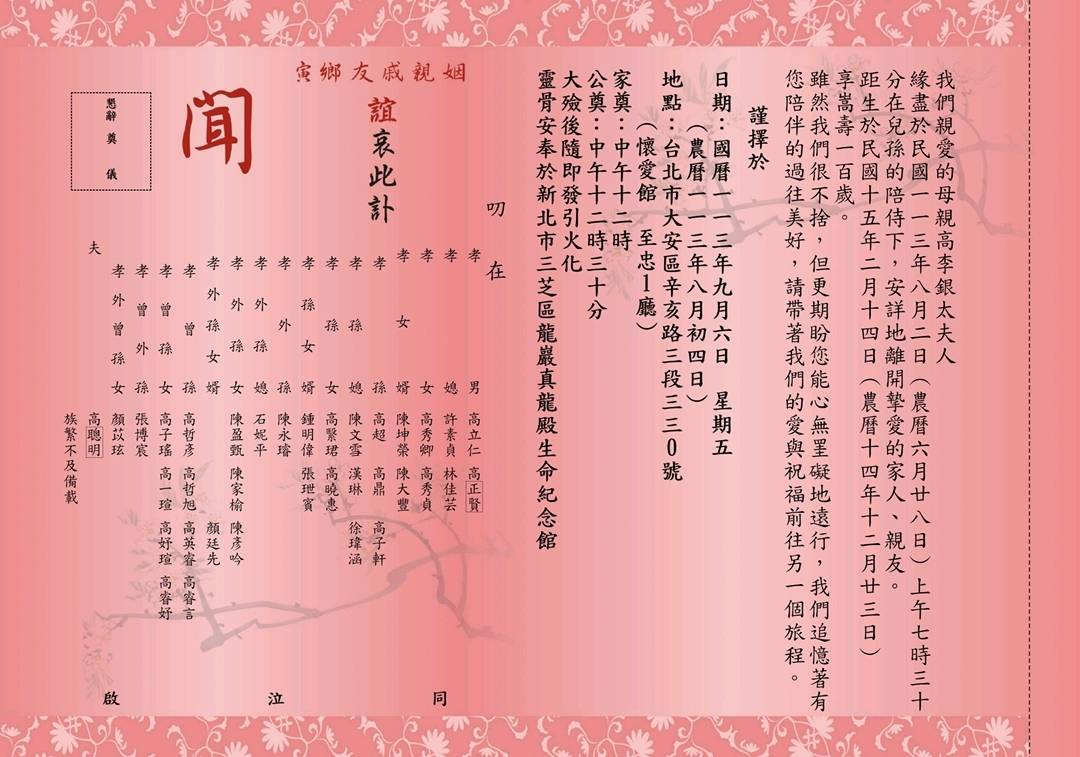 我們親愛的母親高李銀太夫人
緣盡於民國一一三年八月二日（農曆六月廿八日）上午七時三十
分在兒孫的陪侍下，安詳地離開摯愛的家人、親友。
距生於民國十五年二月十四日（農曆十四年十二月廿三日）
享嵩壽一百歲。
雖然我們很不捨，但更期盼您能心無罣礙地遠行，我們追憶著有
您陪伴的過往美好，請帶著我們的愛與祝福前往另一個旅程。
謹擇於
日期：國曆一一三年九月六日 星期五
（農曆一一三年八月初四日）
地點：台北市大安區辛亥路三段三三0號
（懷愛館 至忠1廳）
家奠：中午十二時
公奠：中午十二時三十分
大殮後隨即發引火化
靈骨安奉於新北市三芝區龍巖真龍殿生命紀念館
叨在
姻親戚友鄉寅
誼哀此訃
聞
懇辭 奠 儀
孝男 高立仁 高正賢
孝媳 許素貞 林佳芸
孝女 高秀卿 高秀貞
孝女婿 陳坤榮 陳大豐
孝孫 高超 高鼎 高子軒
孝孫媳 陳文雪 漢琳 徐瑋涵
孝孫女 高繄珺 高曉惠
孝孫女婿 鍾明偉 張玭賓
孝外孫 陳永璿
孝外孫媳 石妮平
孝外孫女 陳盈甄 陳家榆 陳彥吟
孝外孫女婿 顏廷先
孝曾孫 高哲彥 高哲旭 高英睿 高睿言
孝曾孫女 高子瑤 高一瑄 高妤瑄 高睿妤
孝曾外孫 張博宸
孝外曾孫女 顏苡玹
夫 高聰明
族繁不及備載
同 泣 啟